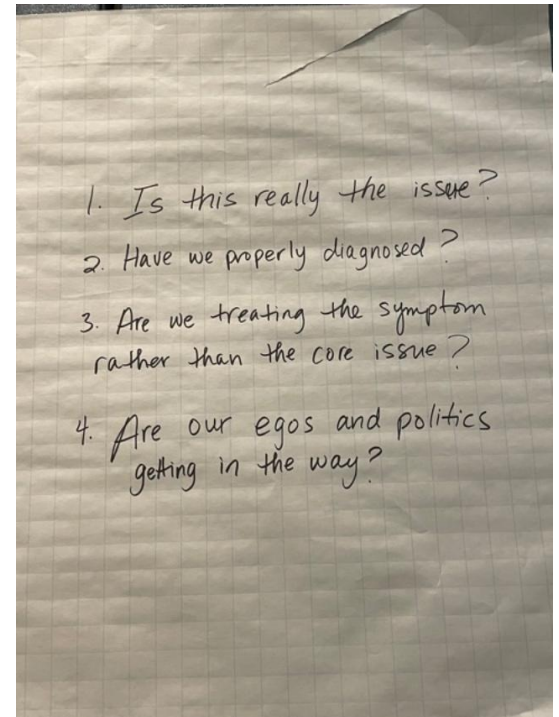 1. Is this really the issue?
2. Have we properly diagnosed?
3. Are we treating the symptom
rather than the core issue?
4. Are our egos and politics
getting in the way?